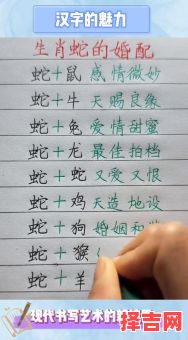 汉字的魅力
生肖蛇的婚配
蛇+鼠 感情微妙
蛇+牛 天赐良缘
蛇+兔 爱情甜蜜
蛇+龙 最佳拍档
蛇+蛇 又爱又恨
蛇+鸡 天造地设
蛇+狗 婚姻和
蛇+猴
蛇+羊
现代书写艺术的
择吉网